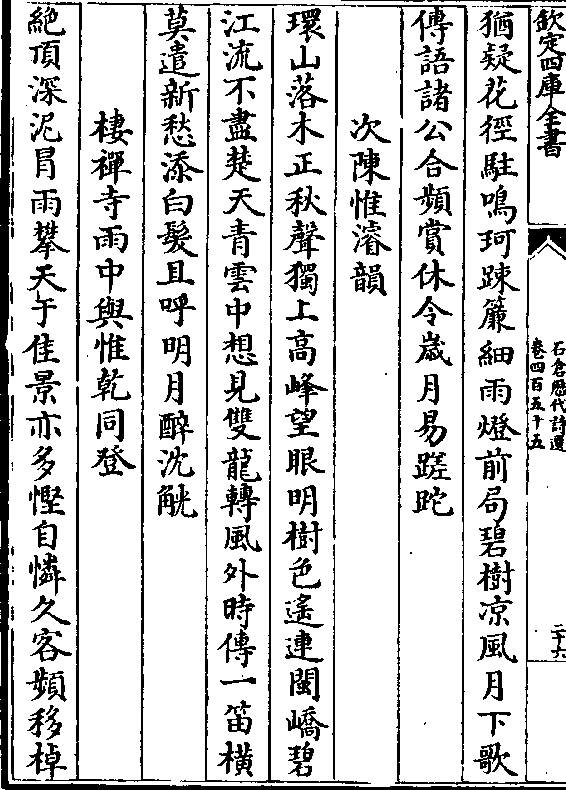 欽定四庫全書
石倉歷代詩選
卷四百五十五
二十六
猶疑花徑駐鳴珂踈簾細雨燈前局碧樹凉風月下歌
傳語諸公合頻賞休令歲月易蹉跎
次陳惟濬韻
環山落木正秋聲獨上高峰望眼明樹色遙連閩嶠碧
江流不盡楚天青雲中想見雙龍轉風外時傳一笛横
莫遣新愁添白髮且呼明月醉沈觥
棲禪寺雨中與惟乾同登
絶頂深泥冒雨攀天于佳景亦多慳自憐久客頻移棹